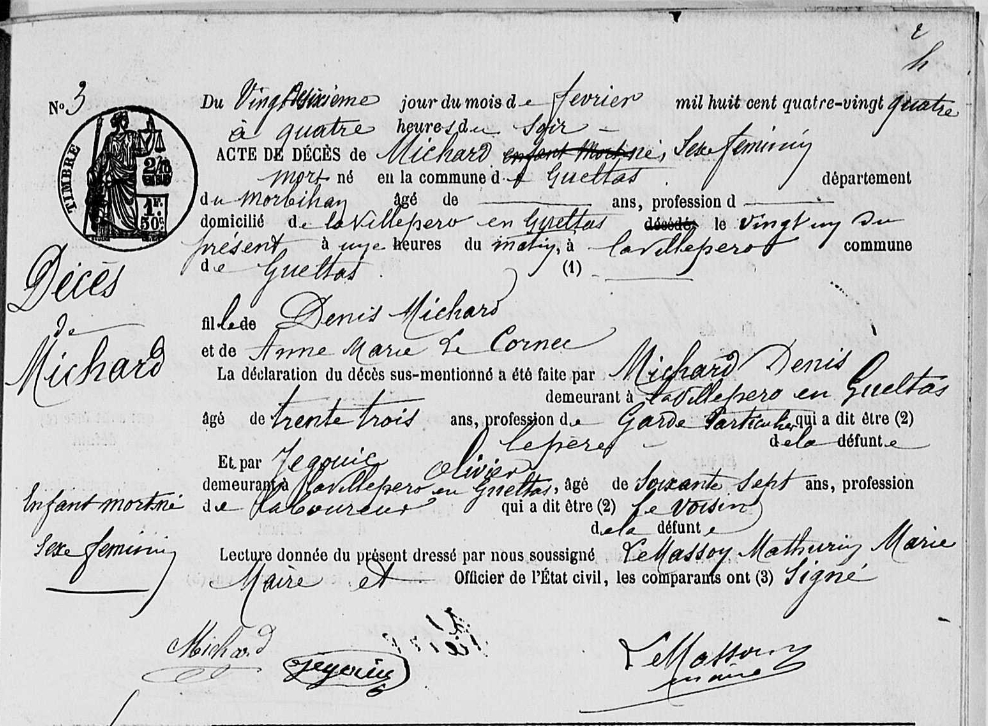 h
No. 3
Du Vingt jour du mois de fevrier mil huit cent quatre-vingt quatre
à quatre heures du Soir
ACTE DE DÉCÈS de Michard enfant mort né, Sexe feminin
mort né en la commune d Gueltas département
du Morbihan âgé de ans, profession d
domicilié de la Villepero en Gueltas décédé, le vingt un du
présent à une heures du matin, à la Villepero commune
de Gueltas. (1)
TIMBRE
2/10
EN SUS
1 F.
50 C.
Décès
de
Michard
Enfant mort né
Sexe feminin
fille de Denis Michard
et de Anne Marie Le Cornec
La déclaration du décès sus-mentionné a été faite par Michard Denis
demeurant à la Villepero en Gueltas
âgé de trente trois ans, profession de Garde Particulier qui a dit être (2)
le père de la défunte
Et par Jegouic Olivier
demeurant à la Villepero en Gueltas, âgé de Soixante sept ans, profession
de laboureur qui a dit être (2) le Voisin
de la défunte
Lecture donnée du présent dressé par nous soussigné Le Massoy Mathurin Marie
Maire et Officier de l'État civil, les comparants ont (3) Signé
Michard Jegouic
maire